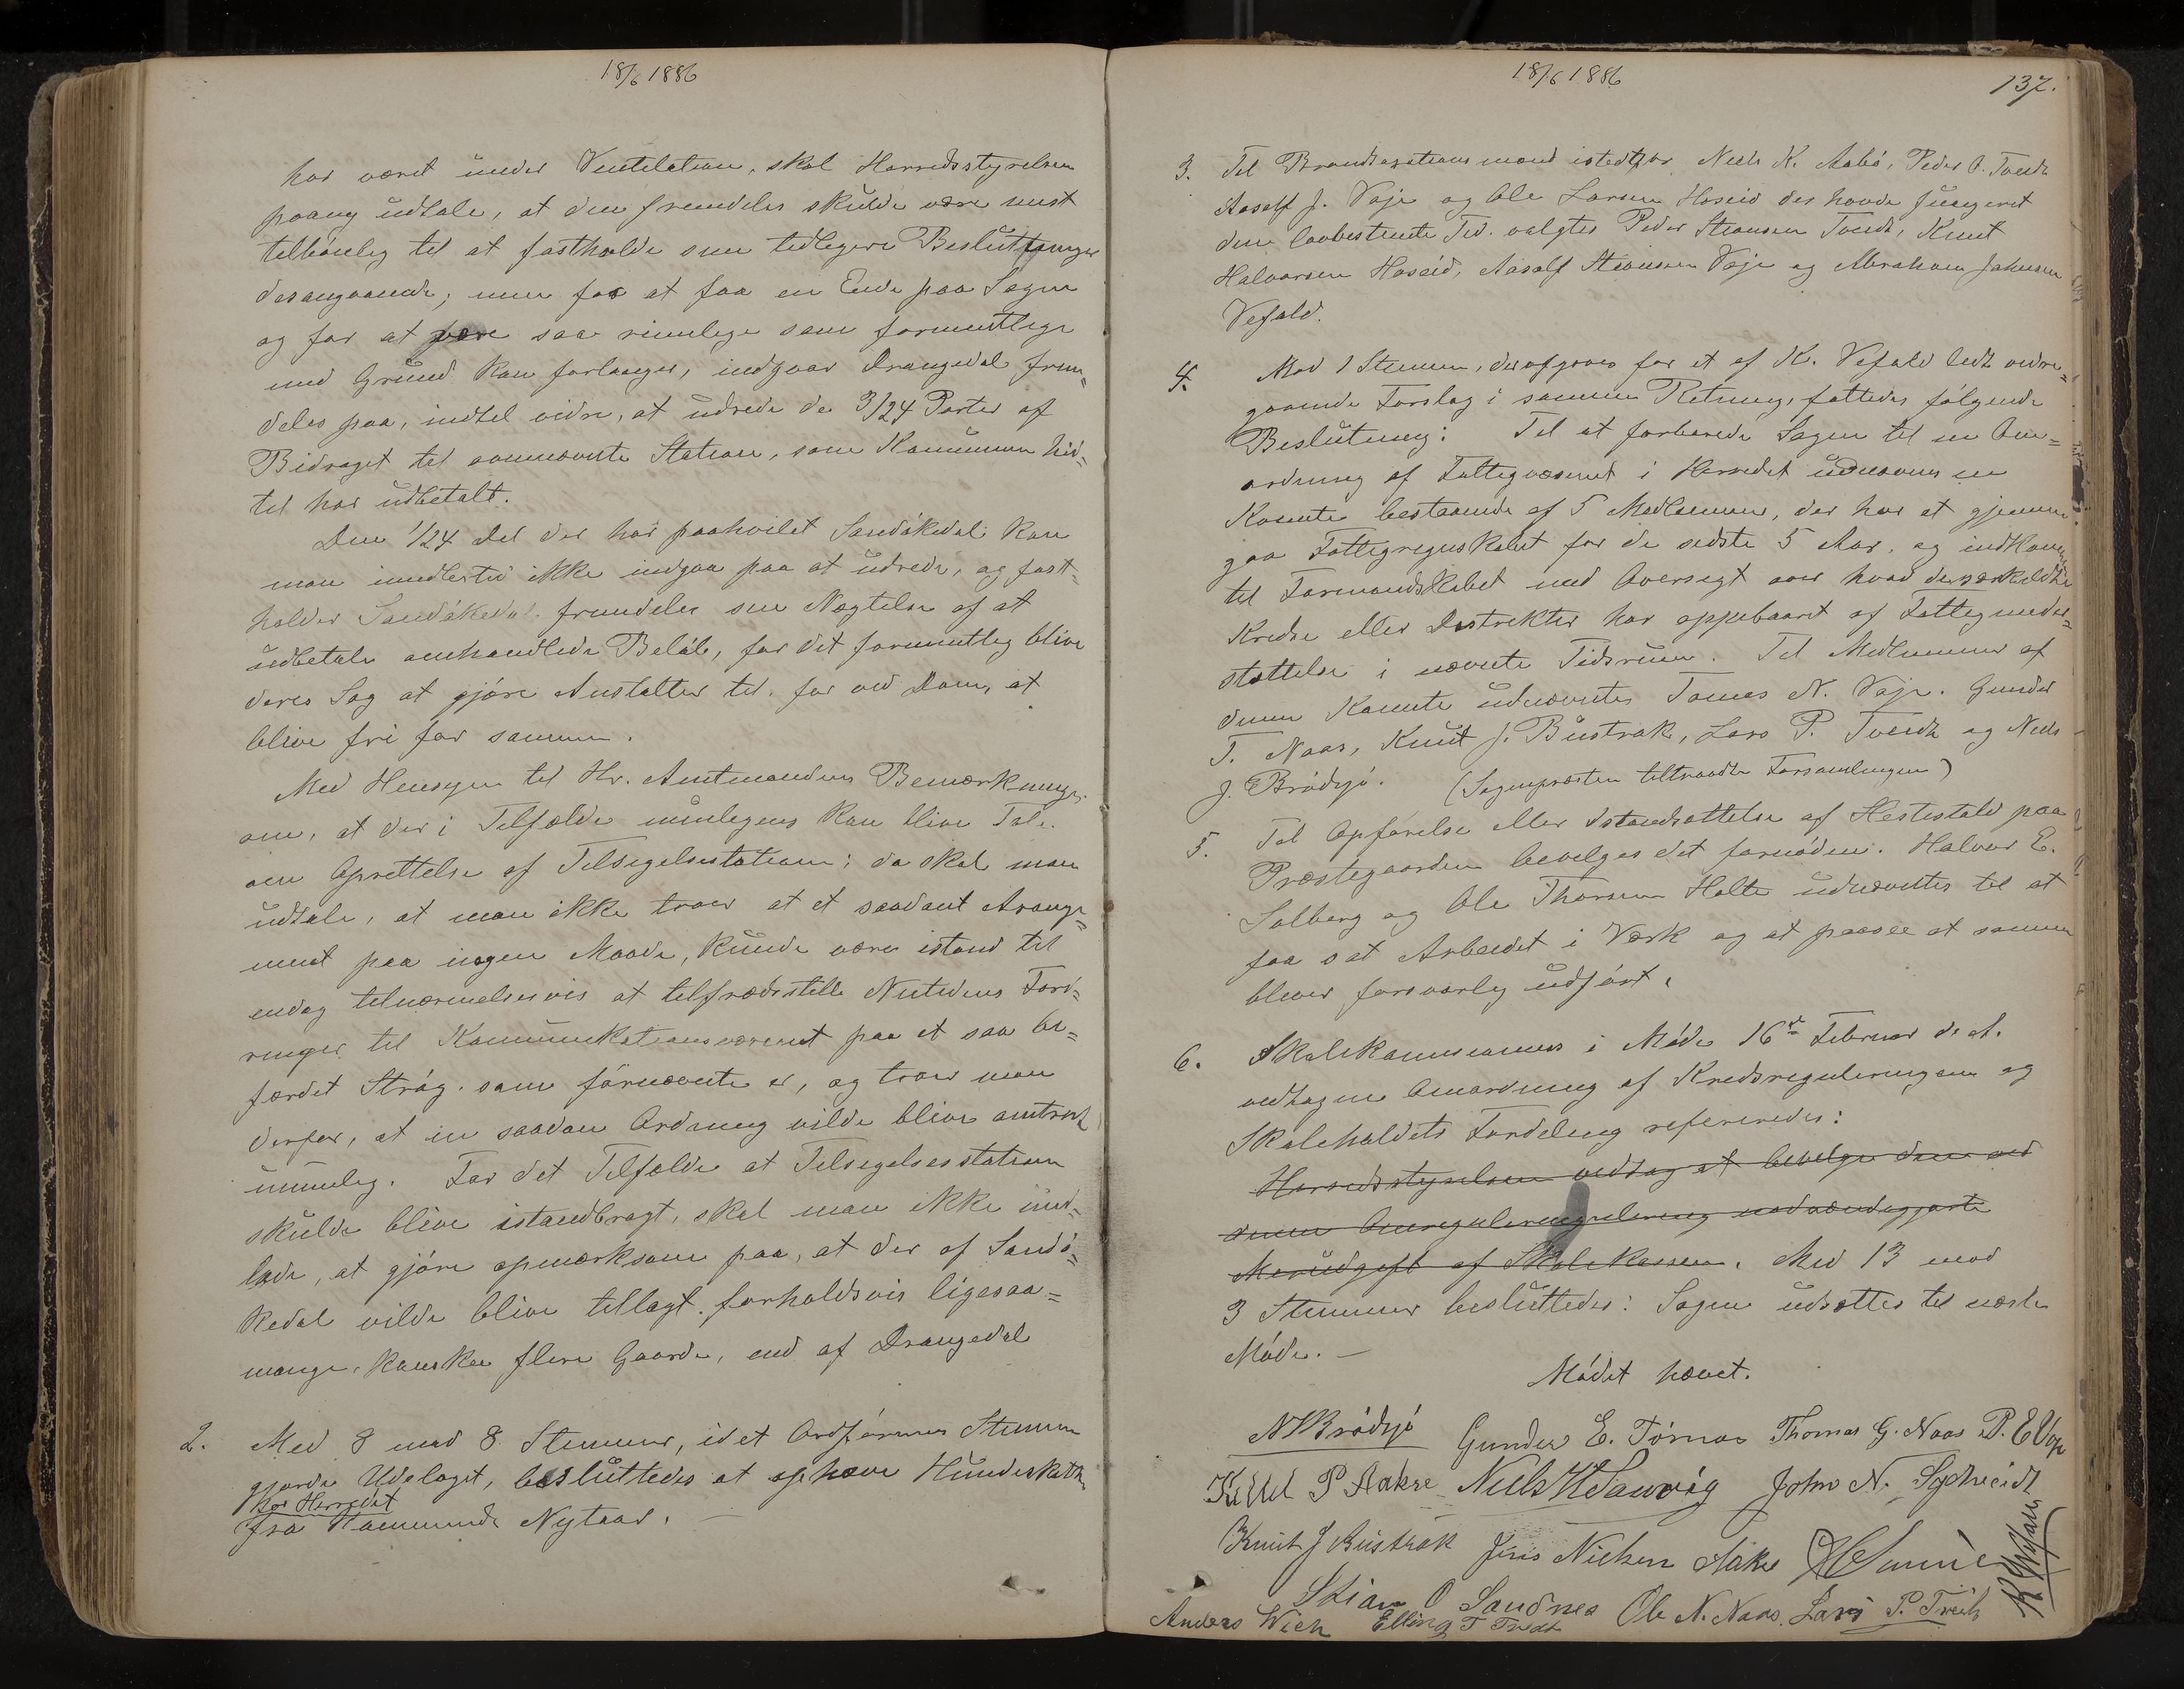 18/6 1886
har været under Ventilation, skal Herredsstyrelsen
paany udtale, at den fremdeles skulde være mest
tilbøielig til at fastholde sin tidligere Beslutninger
desangaaende, men for at faa en Ende paa Sagen
og for at være saa rimelige som formentlige
med Grund kan forlanges, indgaar Drangedal frem=
deles paa, indtil videre, at udrede de 3/24 Parter af
Bidraget til omnævnte Station, som Kommunen hid=
til har udbetalt.
Den 1/24 Del der har paahvilet Sandøkedal kan
man imidlertid ikke indgaa paa at udrede, og fast=
holder Sandøkedal fremdeles sin Nægtelse af at
udbetale omhandlede Beløb, faar det formentlig blive
deres Sag at gjøre Anstalter til, for ved Dom, at
blive fri for samme.
Med Hensyn til Hr. Amtmandens Bemærkninger
om, at der i Tilfælde muligens kan blive Tale
om Oprettelse af Tilsigelsesstation; da skal man
udtale, at man ikke troer at et saadant Arange=
ment paa nogen Maade, kunde være istand til
endog tilnærmelsesvis at tilfredsstille Nutidens Ford=
ringer til Kommunikationsvæsenet paa et saa be=
færdet Strøg som førnævnte er, og troer man
derfor, at en saadan Ordning vilde blive omtrent
umulig. For det Tilfælde at Tilsigelsesstation
skulde blive istandbragt, skal man ikke und=
lade, at gjøre opmærksom paa, at der af Sandø=
kedal vilde blive tillagt forholdsvis ligesaa=
mange, kanske flere Gaarde, end af Drangedal
2. Med 8 mod 8 Stemmer, idet Ordførerens Stemme
gjorde Udslaget, besluttedes at ophæve Hundeskatten
for Herredet
fra Kommende Nytaar. —
18/6 1886
137.
3. Til Brandtaxationsmænd istedfor Niels K. Aabø, Peder O. Tveidt
Aasolf J. Voje og Ole Larsen Hoseid der havde fungeret
den lovbestemte Tid valgtes Peder Steansen Tveidt, Knut
Halvorsen Hoseid, Aasolf Steansen Voje og Abraham Johnsen
Vefald.
4. Mod 1 Stemme, der afgaves for et af K. Vefald lidt videre=
gaaende Forslag i samme Retning, fattedes følgende
Beslutning: Til at forberede Sagen til en Om=
ordning af Fattigvæsenet i Herredet udnævnes en
Komite bestaaende af 5 Medlemmer, der har at gjennem
gaa Fattigregnskabet for de sidste 5 Aar, og indkomme
til Formandskabet med Oversigt over hvad de særskildte
Kredse eller Distrikter har oppebaaret af Fattigunder=
støttelse i nævnte Tidsrum. Til Medlemmer af
denne Komite udnævntes Tomas N. Voje. Gunder
T. Naas, Knut J. Bustrak, Lars P. Tveidt og Niels
J. Brødsjø. (Sognepræsten tiltraadte Forsamlingen)
5. Til Opførelse eller Istandsættelse af Hestestald paa
Præstegaarden bevilges det fornødne. Halvor E.
Solberg og Ole Thorsen Holte udnævntes til at
faa sat Arbeidet i Værk og at paasee at samme
bliver forsvarlig udført.
6. Skolekommissionens i Møde 16de Februar d. A.
vedtagne Omordning af Kredsreguleringen og
Skoleholdets Fordeling refereredes:
Herredsstyrelsen vedtog at bevilge den ved
denne Omreguleringulering nødvændiggjorte
Merudgift af Skolekassen. Med 13 mod
3 Stemmer besluttedes: Sagen udsættes til næste
Møde. —
Mødet hævet.
N Brødsjø Gunder E. Tørnes Thomas G. Naas P. E Voje
Kittel P Aakre Niels H Sanvig John N.
Knut J Bustrak Jens Nielsen Aakre
Stian O Sandnes Ole N. Naas. Lars P. Tveit
Anders Wieh Elling T Tvedt